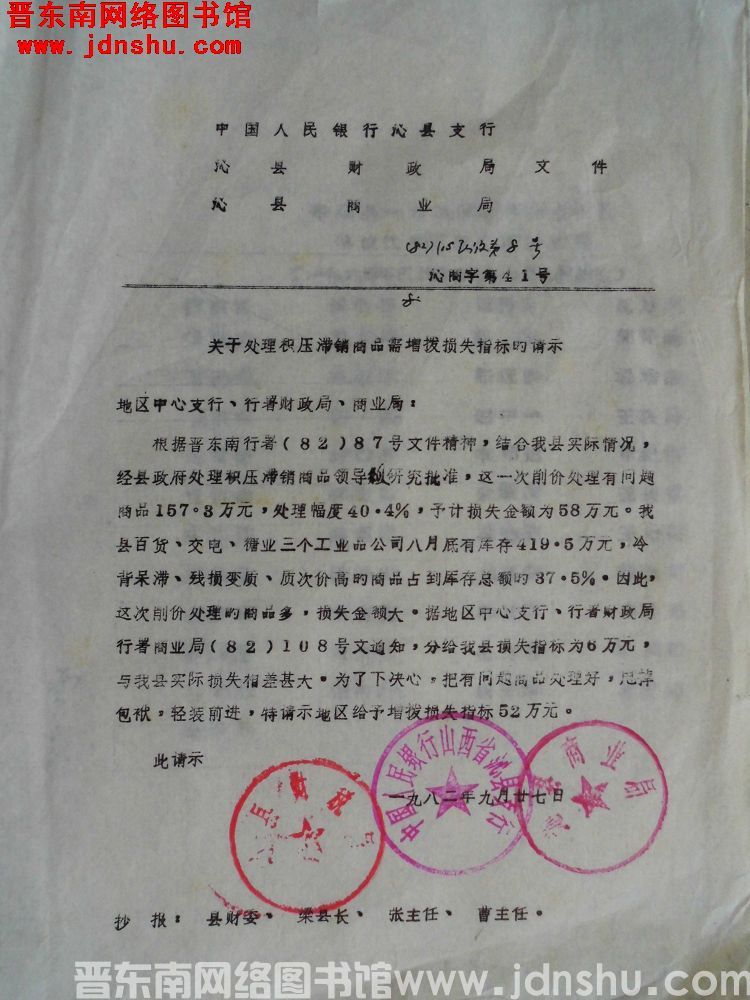 晋东南网络图书馆
www.jdnshu.com
中国人民银行沁县支行
沁县财政局文件
沁县商业局
(82) 第8号
沁商字第41号
8
关于处理积压滞销商品需增拨损失指标的请示
地区中心支行、行署财政局、商业局：
根据晋东南行署(82)87号文件精神，结合我县实际情况，
经县政府处理积压滞销商品领导组研究批准，这一次削价处理有问题
商品157·3万元，处理幅度40·4%，予计损失金额为58万元。我
县百货、交电、糖业三个工业品公司八月底有库存419·5万元，冷
背呆滞、残损变质、质次价高的商品占到库存总额的37·5%。因此，
这次削价处理的商品多，损失金额大。据地区中心支行、行署财政局
行署商业局(82)108号文通知，分给我县损失指标为6万元，
与我县实际损失相差甚大。为了下决心，把有问题商品处理好，甩掉
包袱，轻装前进，特请示地区给予增拨损失指标52万元。
此请示
一九八二年九月廿七日
中国人民银行山西省沁县支行
县财政
商业局
抄报：县财委、梁县长、张主任、曹主任。
晋东南网络图书馆www.jdnshu.com